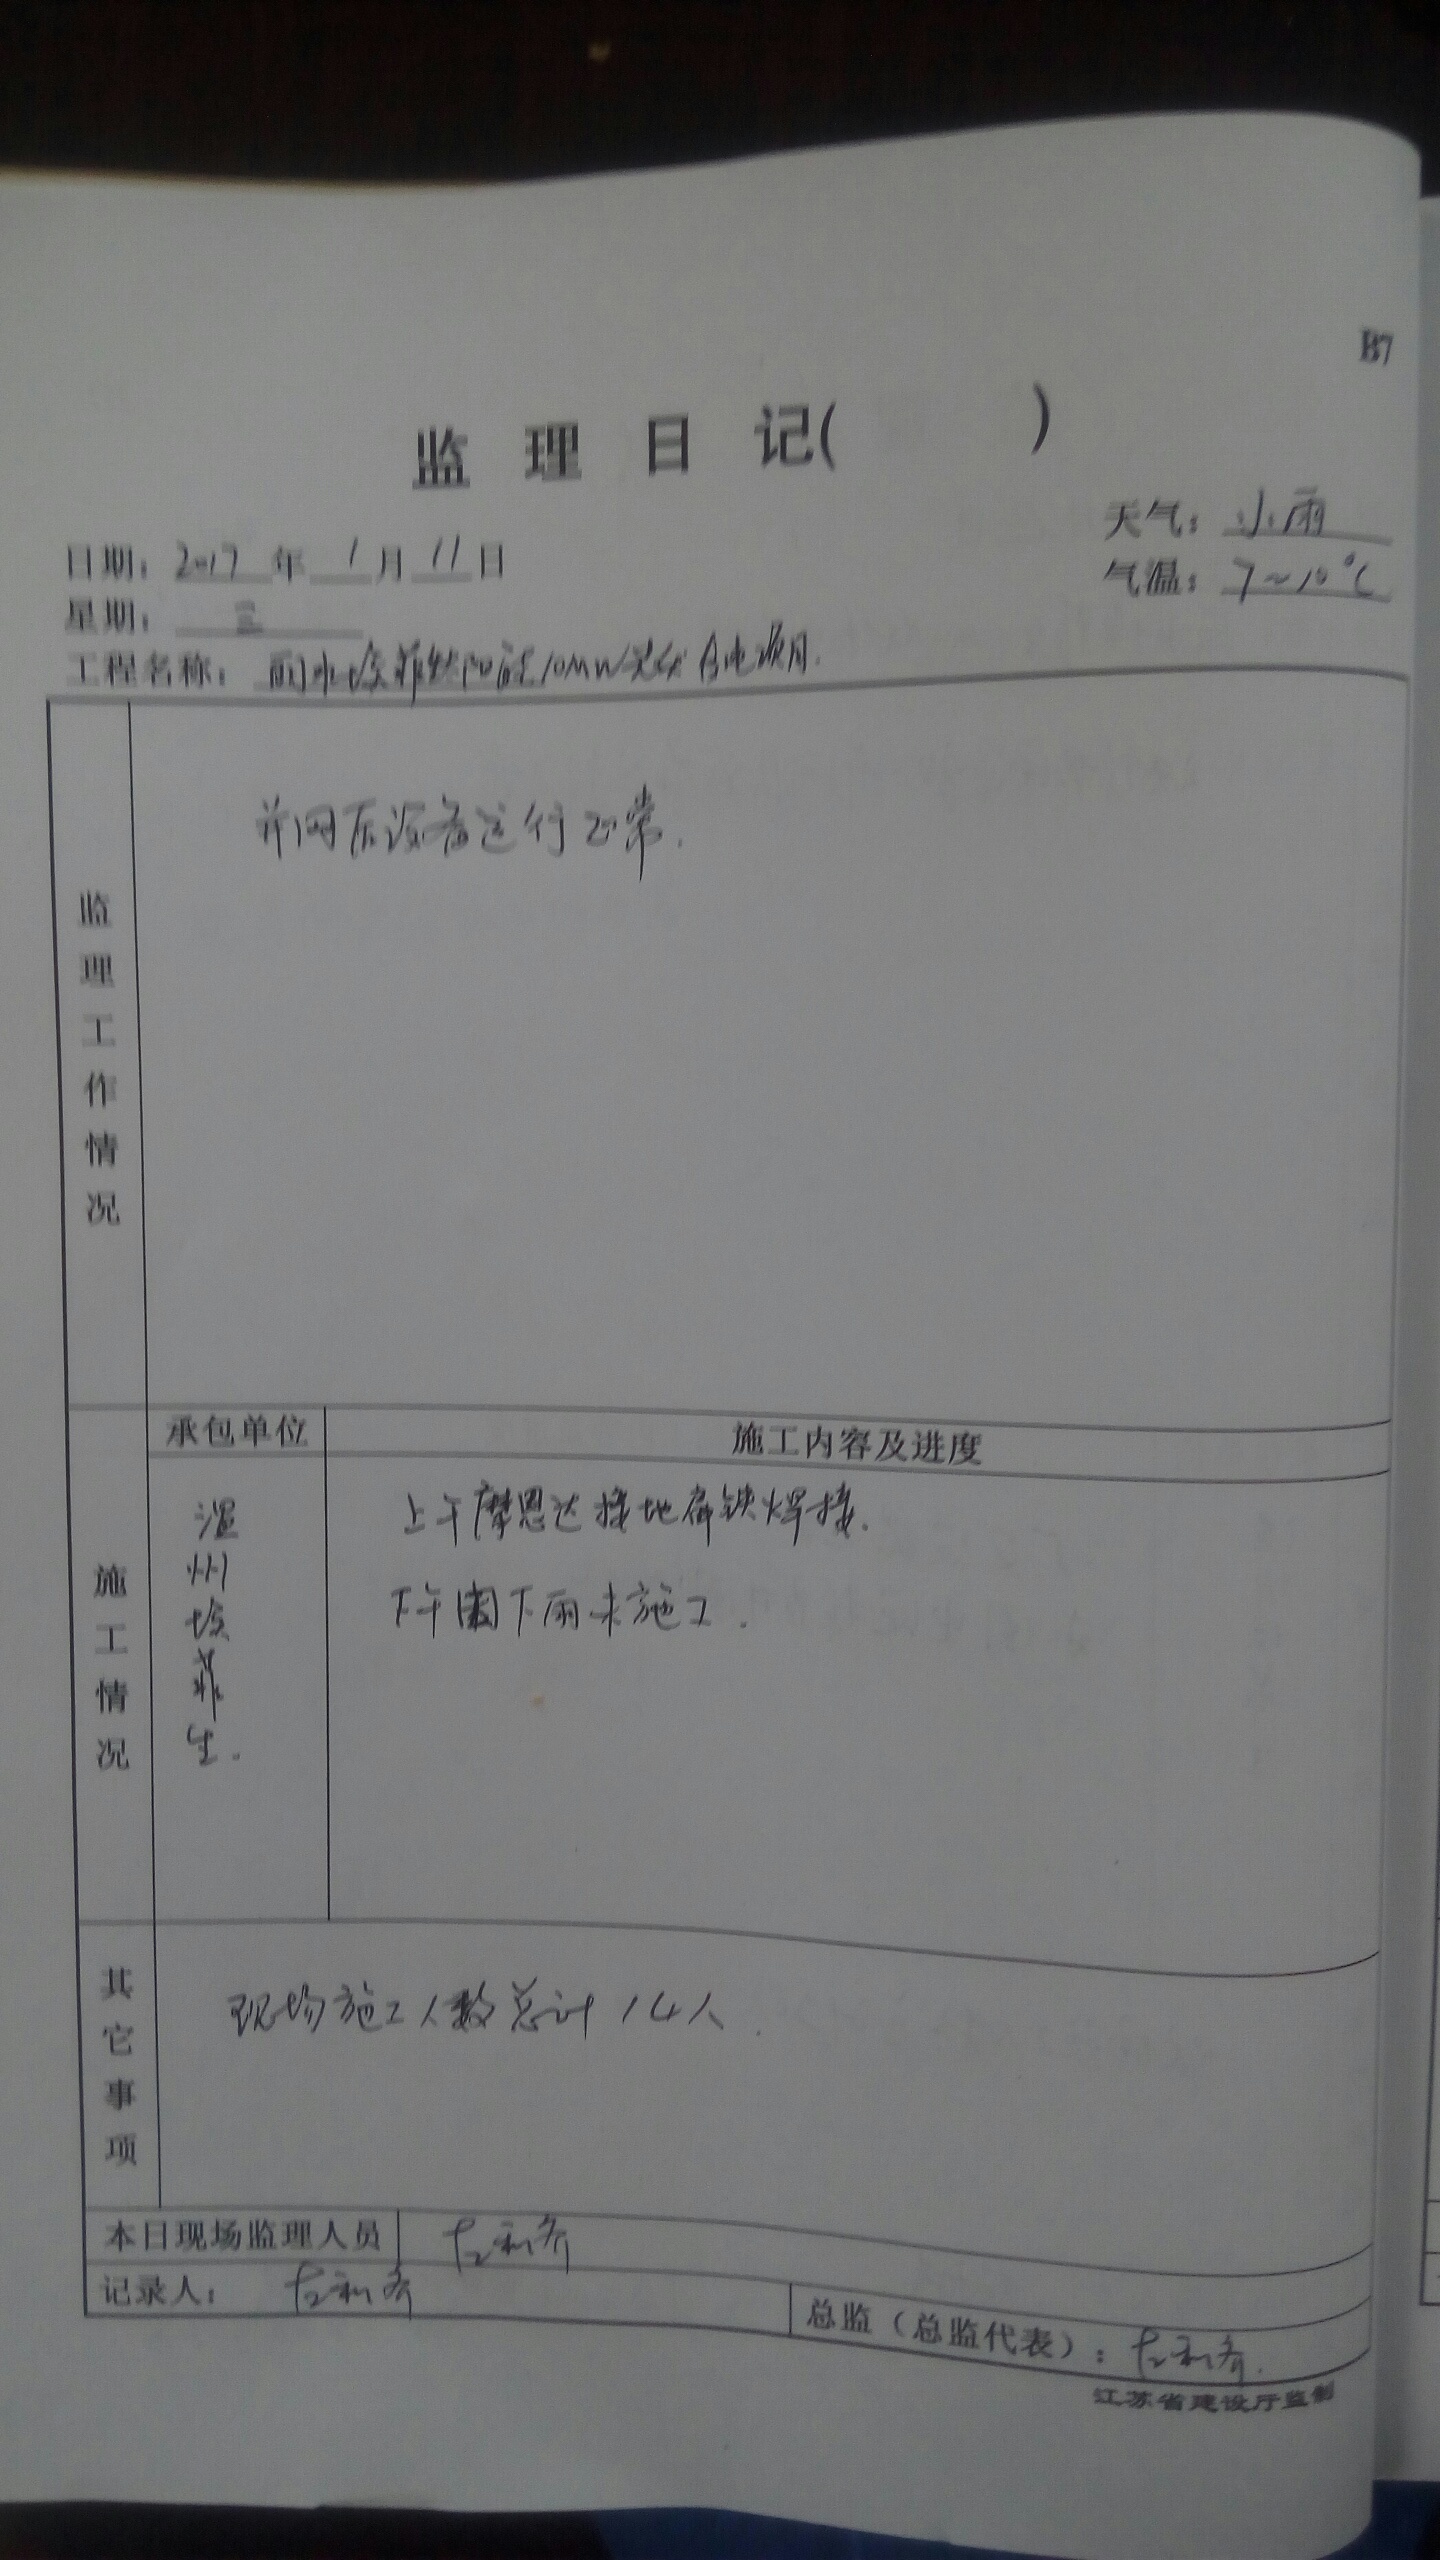 B7
监理日记(          )
天气：小雨
日期：2017年1月11日
气温：7~10℃
星期：三
工程名称：丽水埃菲生10MW光伏合电项目.
监理工作情况
并网后设备运行正常.
施工情况
承包单位
施工内容及进度
温州埃菲生.
上午摩恩达接地扁铁焊接.
下午因下雨未施工.
其它事项
现场施工人数总计14人.
本日现场监理人员
记录人：
总监（总监代表）：
江苏省建设厅监制